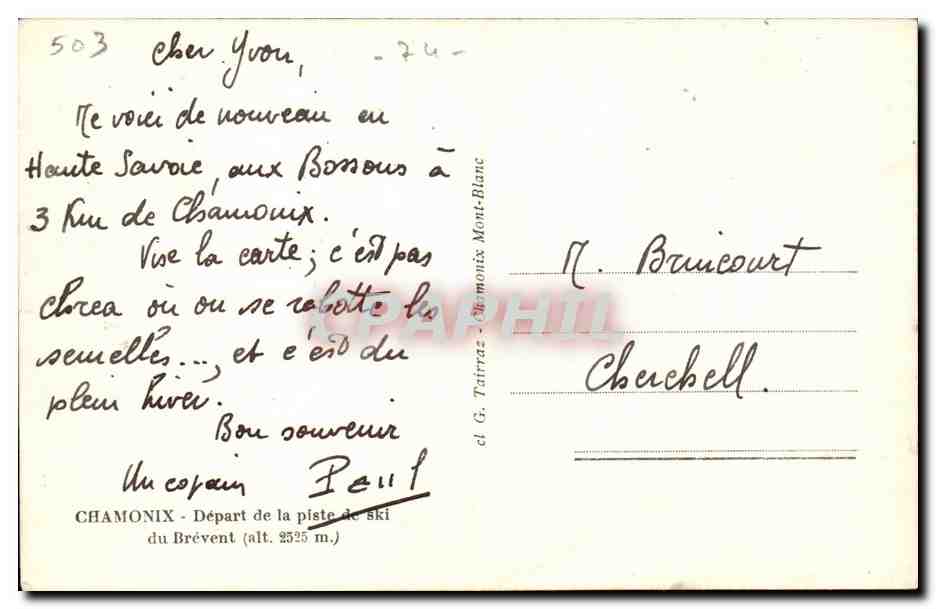 503
- 74 -
Cher Yvon,
Me voici de nouveau en
Haute Savoie, aux Bossons à
3 Km de Chamonix.
Vise la carte; c'est pas
où on se rabotte les
semelles..., et c'est du
plein hiver.
Bon souvenir
Un copain Paul
CHAMONIX - Départ de la piste de ski
du Brévent (alt. 2525 m.)
cl G. Tairraz - Chamonix Mont-Blanc
M. Brincourt
Cherchell.
CPAPHIL